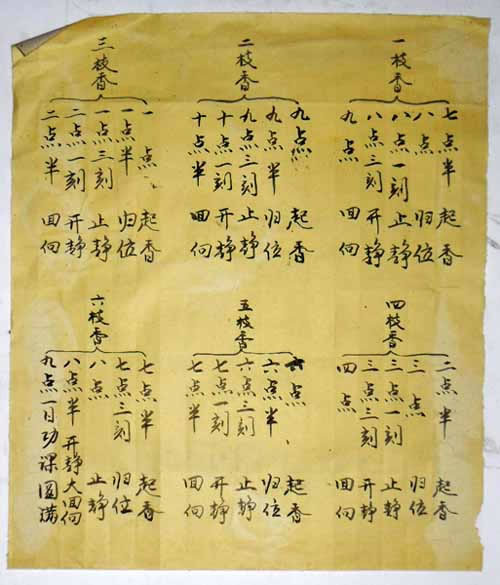 一枝香
七点半 起香
八点 归位
八点一刻 止静
八点三刻 开静
九点 回向
二枝香
九点 起香
九点半 归位
九点三刻 止静
十点一刻 开静
十点半 回向
三枝香
一点 起香
一点半 归位
一点三刻 止静
二点一刻 开静
二点半 回向
四枝香
二点半 起香
三点 归位
三点一刻 止静
三点三刻 开静
四点 回向
五枝香
六点 起香
六点半 归位
六点三刻 止静
七点一刻 开静
七点半 回向
六枝香
七点半 起香
七点三刻 归位
八点 止静
八点半 开静大回向
九点一日功课圆满